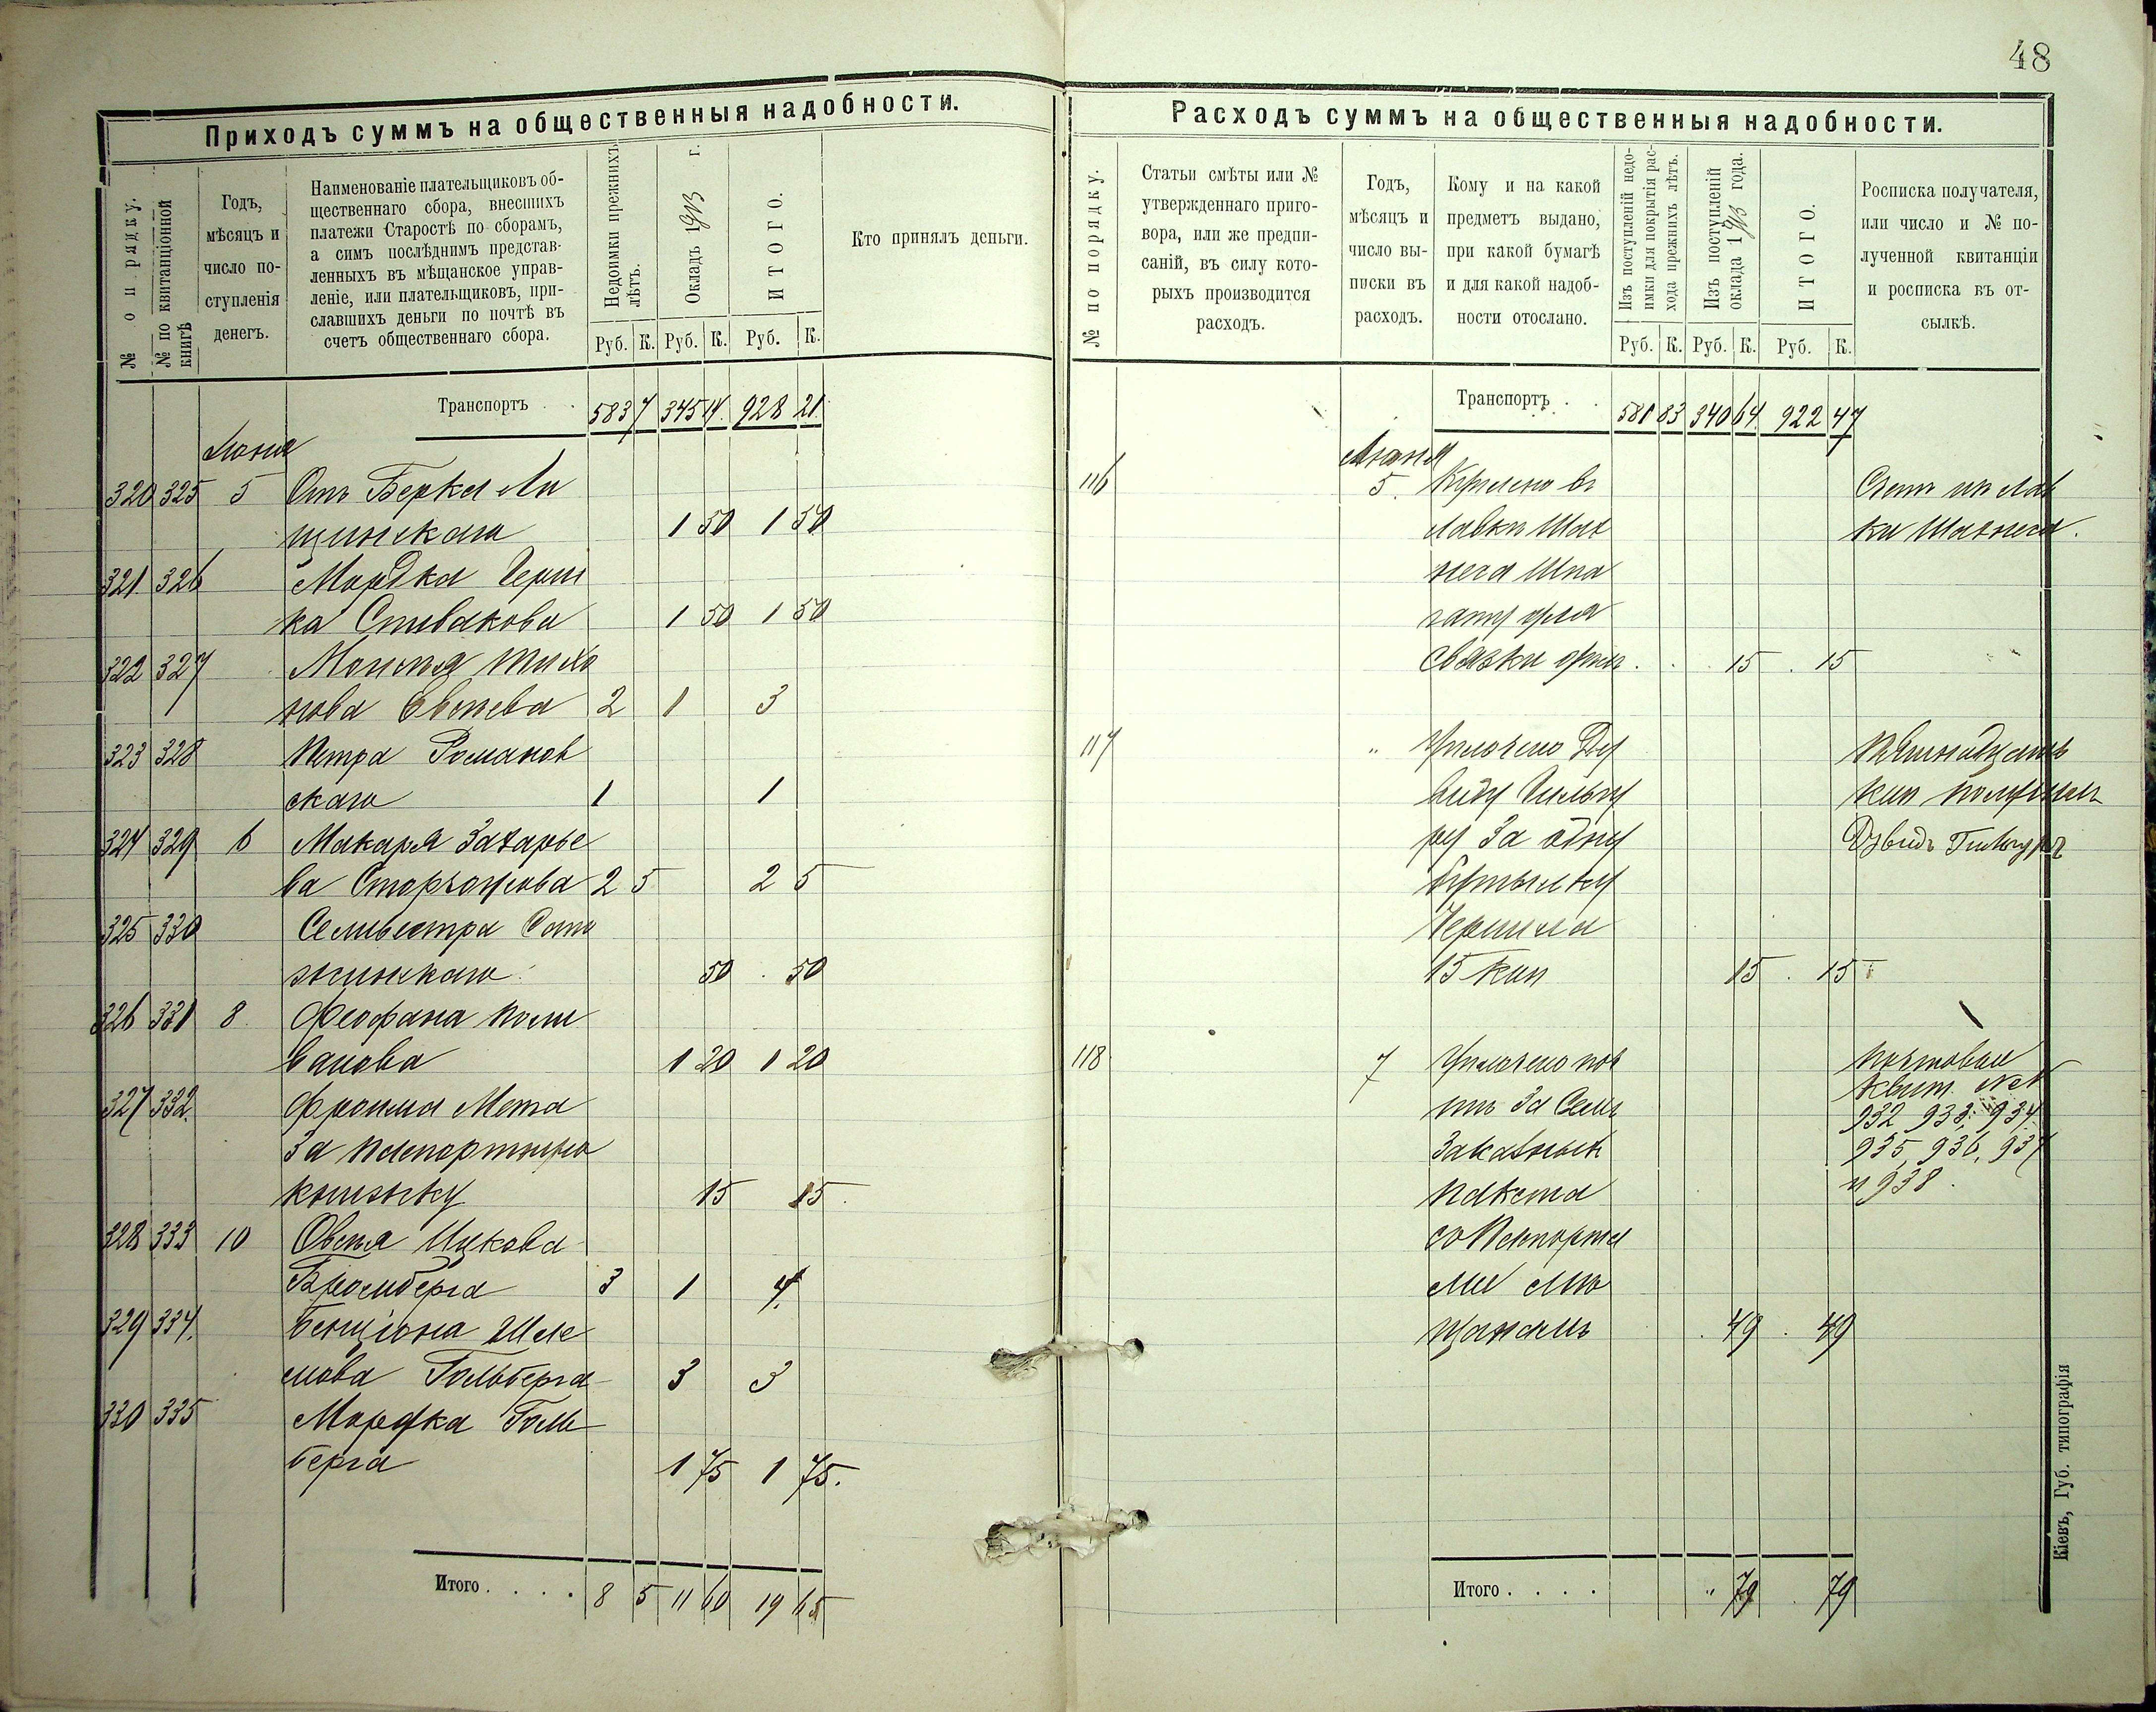 48
Приходъ суммъ на общественныя надобности.
№ по порядку.
№ по квитанціонной книгѣ
Годъ, мѣсяцъ и число по-
ступленія денегъ.
Наименованіе плательщиковъ об-
щественнаго сбора, внесшихъ
платежи Старостѣ по сборамъ,
а симъ послѣднимъ представ-
ленныхъ въ мѣщанское управ-
леніе, или плательщиковъ, при-
славшихъ деньги по почтѣ въ
счетъ общественнаго сбора.
Недоимки прежнихъ лѣтъ.
Окладъ 1913 г.
ИТОГО.
Кто принялъ деньги.
Руб. К. Руб. К. Руб. К.
Транспортъ . . 583 7 345 14 928 21
Іюня
320 325 5 Отъ Берка Ли
щинскаго 1 50 1 50
321 326 Мордка Герш
ка Спивакова 1 50 1 50
322 327 Моисея Тихо
нова Евсеева 2 1 3
323 328 Петра Романов
скаго 1 1
324 329 6 Макара Захарье
ва Сторожова 2 5 2 5
325 330 Селивестра
50 50
326 331 8 Феофана Поли
ванова 1 20 1 20
327 332 Фроима Мета
за паспортную
книжку 15 15
328 333 10 Овсея Ицкова
Бромберга 3 1 4
329 334 Бенціона Шле
мова Гольберга 3 3
330 335 Мордка Голь
берга 1 75 1 75.
Итого . . . . 8 5 11 60 19 65
Расходъ суммъ на общественныя надобности.
№ по порядку.
Статьи смѣты или №
утвержденнаго приго-
вора, или же предпи-
саній, въ силу кото-
рыхъ производится
расходъ.
Годъ,
мѣсяцъ и
число вы-
писки въ
расходъ.
Кому и на какой
предметъ выдано,
при какой бумагѣ
и для какой надоб-
ности отослано.
Изъ поступленій недо-
имки для покрытія рас-
хода прежнихъ лѣтъ.
Изъ поступленій
оклада 1913 года.
ИТОГО.
Росписка получателя,
или число и № по-
лученной квитанціи
и росписка въ от-
сылкѣ.
Руб. К. Руб. К. Руб. К.
Транспортъ . . 581 83 340 64 922 47
Іюня
116 5. Куплено въ Счетъ изъ лав
лавки Шах ки Шахнеса.
неса шпа
гату для
связки дѣлъ . 15 . 15
117 " Уплочено Ду Пятнадцать
виду Гильгу коп получилъ
ру за одну Дувидъ Гильгуръ
бутылку
чернила
15 коп 15 . 15
118 7 Уплочено поч Почтовыя
тѣ за семь Квит. №№
заказныхъ 932 933, 934
пакета 935, 936, 937
со паспорта и 938.
ми мѣ
щанамъ 49 . 49
Итого . . . . " 79 79
Кіевъ, Губ. типографія